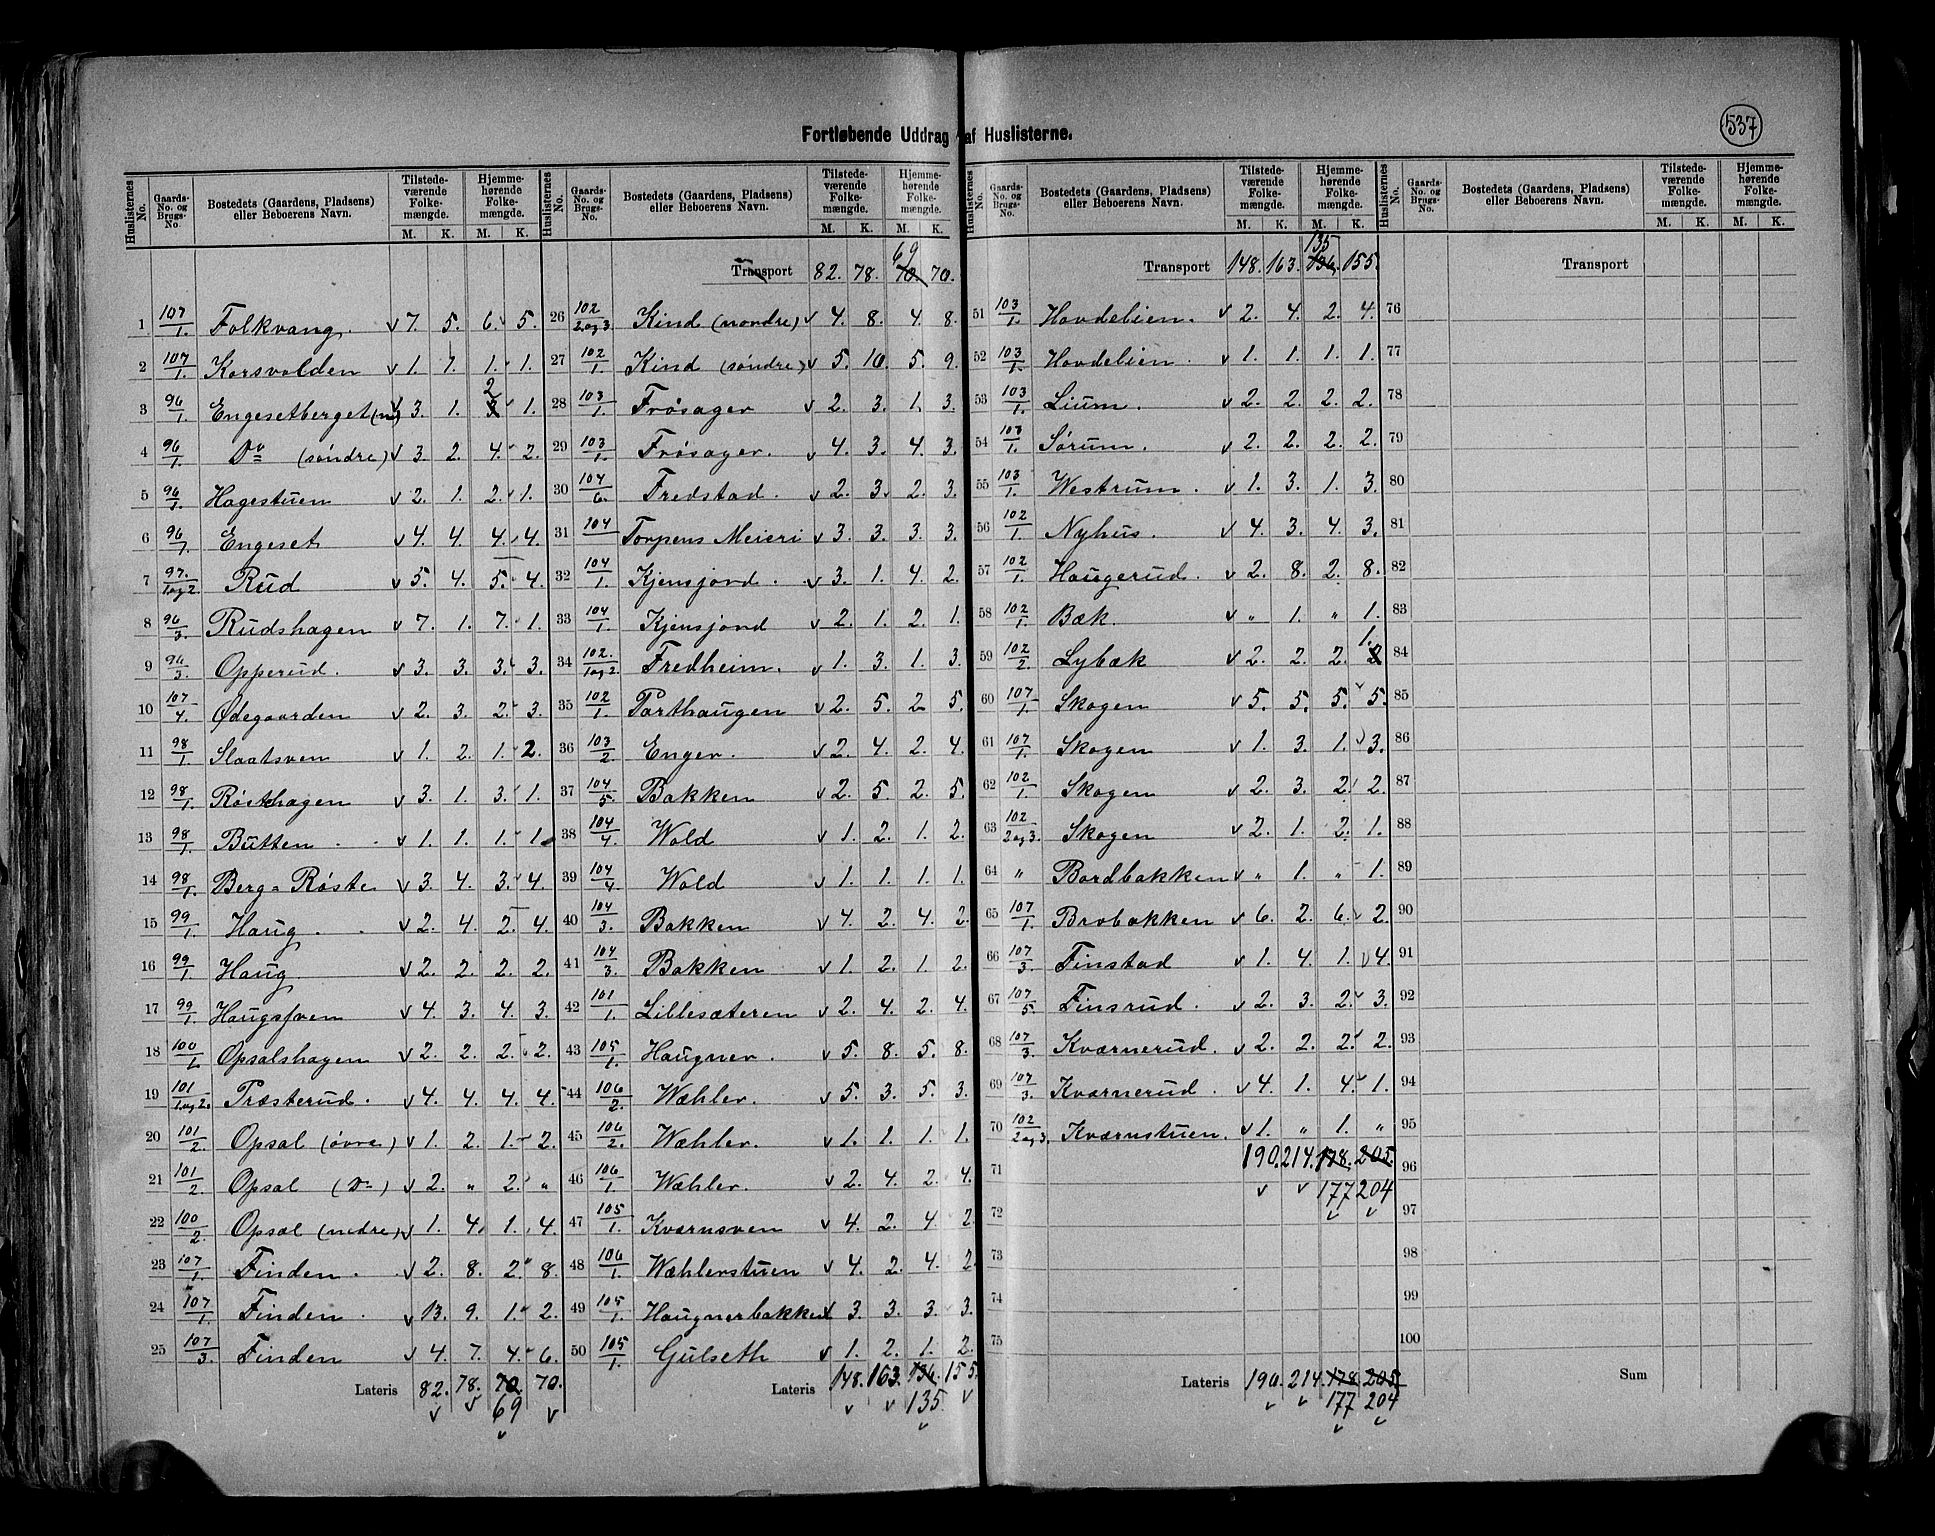 537
Fortløbende Uddrag af Huslisterne.
Huslisternes No. | Gaards-No. og Brugs-No. | Bostedets (Gaardens, Pladsens) eller Beboerens Navn. | Tilstedeværende Folkemængde. M. K. | Hjemmehørende Folkemængde. M. K.
1 107/1. Folkvang. 7. 5. 6. 5.
2 107/1. Korsvolden 1. 1. 1. 1.
3 96/1. Engesetberget (n) 3. 1. 3 2 1.
4 96/1. Do (søndre) 3. 2. 4. 2.
5 96/1. Hagestuen 2. 1. 2. 1.
6 96/1. Engeset 4. 4. 4. 4.
7 97./1og2. Rud 5. 4. 5. 4.
8 96/3. Rudshagen 7. 1. 7. 1.
9 96/3. Opperud. 3. 3. 3. 3.
10 107/4. Ødegaarden 2. 3. 2. 3.
11 98/1. Slaatsven 1. 2. 1. 2.
12 98/1. Røsthagen 3. 1. 3. 1.
13 98/1. Butten 1. 1. 1. 1.
14 98/1. Berg=Røste 3. 4. 3. 4.
15 99/1. Haug. 2. 4. 2. 4.
16 99/1 Haug 2. 2. 2. 2.
17 99/1. Haugsfven 4. 3. 4. 3.
18 100/1. Opsalshagen 2. 2. 2. 2.
19 101/1og2. Præsterud. 4. 4. 4. 4.
20 101/2. Opsal (øvre) 1. 2. 1. 2.
21 101/2. Opsal (Do) 2. " 2. "
22 100/2. Opsal (nedre) 1. 4. 1. 4.
23 107/1. Finden. 2. 8. 2. 8.
24 107/1. Finden. 13. 9. 1. 2.
25 107/3. Finden 4. 7. 4. 6.
Lateris 82. 78. 70. 70.
69
Transport 82. 78. 70. 69 70.
26 102/2og3. Kind (nordre) 4. 8. 4. 8.
27 102/1. Kind (søndre) 5. 10. 5. 9.
28 103/1. Frøsager 2. 3. 1. 3.
29 103/1. Frøsager. 4. 3. 4. 3.
30 104/6. Fredstad. 2. 3. 2. 3.
31 104 Torpens Meieri 3. 3. 3. 3.
32 104/1. Kjensjord. 3. 1. 4. 2.
33 104/1. Kjensjord 2. 1. 2. 1.
34 102./1og2. Fredheim. 1. 3. 1. 3.
35 102/1. Porthaugen 2. 5. 2. 5.
36 103/2. Enger. 2. 4. 2. 4.
37 104/5. Bakken 2. 5. 2. 5.
38 104/4. Wold 1. 2. 1. 2.
39 104/4. Wold 1. 1. 1. 1.
40 104/3. Bakken 4. 2. 4. 2.
41 104/3. Bakken 1. 2. 1. 2.
42 101/1. Lillesæteren 2. 4. 2. 4.
43 105/1. Haugner. 5. 8. 5. 8.
44 106/2. Wæhler. 5. 3. 5. 3.
45 106/2. Wæhler. 1. 1. 1. 1.
46 106/1. Wæhler. 2. 4. 2. 4.
47 105/1. Kværnsven 4. 2. 4. 2.
48 106/1. Wæhlerstuen 4. 2. 4. 2.
49 105/1. Haugnerbakken 3. 3. 3. 3.
50 105/1. Gulseth 1. 2. 1. 2.
Lateris 148. 163. 136. 155.
135.
Transport 148. 163. 136. 135 155.
51 103/1. Hovdelien. 2. 4. 2. 4.
52 103/1. Hovdelien. 1. 1. 1. 1.
53 103/1. Lium. 2. 2. 2. 2.
54 103/1. Sørum. 2. 2. 2. 2.
55 103/1. Westrum. 1. 3. 1. 3.
56 102/1 Nyhus. 4. 3. 4. 3.
57 102/1. Haugerud. 2. 8. 2. 8.
58 102/1. Bæk. " 1. " 1.
59 102/2. Lybæk 2. 2. 2. 2 1.
60 107/1. Skogen 5. 5. 5. 5.
61 107/1. Skogen 1. 3. 1. 3.
62 102/1. Skogen 2. 3. 2. 2.
63 102/2og3. Skogen 2. 1. 2. 1.
64 " Bordbakken " 1. " 1.
65 107/1. Brobakken 6. 2. 6. 2.
66 107/3. Finstad 1. 4. 1. 4.
67 107/5. Finsrud. 2. 3. 2. 3.
68 107/3. Kværnerud. 2. 2. 2. 2.
69 107/3. Kværnerud. 4. 1. 4. 1.
70 102/2og3. Kværnstuen. 1. " 1. "
71 190. 214. 178. 205.
177 204
72
73
74
75
Lateris 190. 214. 178. 205.
177 204
Transport
76
77
78
79
80
81
82
83
84
85
86
87
88
89
90
91
92
93
94
95
96
97
98
99
100
Sum